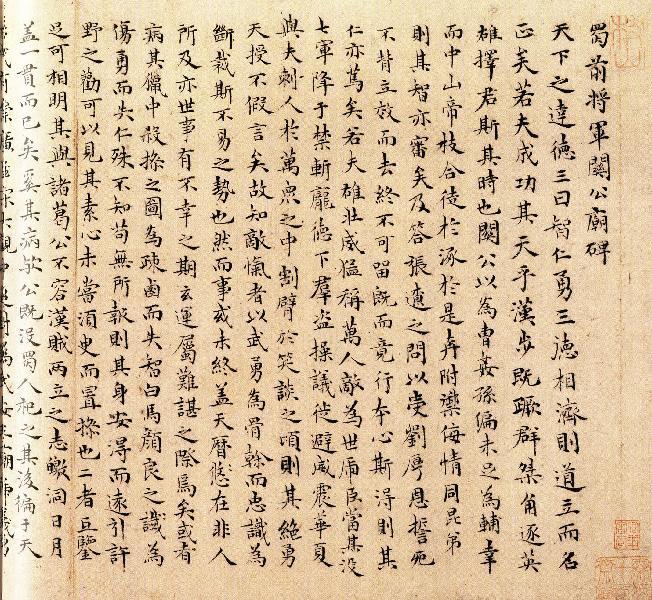 蜀前将軍關公廟碑
天下之達德三曰智仁勇三德相濟則道立而名
正矣若夫成功其天乎漢步既蹶群桀角逐英
雄擇君斯其時也關公以為曹姦孫偏未足為輔幸
而中山帝枝合徒於涿於是奔附禦侮情同昆弟
則其智亦審矣及答張遼之問以受劉厚恩誓死
不背立效而去終不可留既而竟行本心斯得則其
仁亦篤矣若夫雄壯威猛稱萬人敵為世虎臣當其没
七軍降于禁斬龐德下群盗操議徙避威震華夏
與夫刺人於萬衆之中割臂於笑談之頃則其絶勇
天授不假言矣故知敵愾者以武勇為骨榦而忠識為
斷裁斯不易之勢也然而事或未終盖天曆悠在非人
所及亦世事有不幸之期玄運屬難諶之際焉矣或者
病其獵中殺操之圖為疎鹵而失智白馬顔良之識為
傷勇而失仁殊不知苟無所報則其身安得而遠引許
野之勸可以見其素心未嘗須臾而置操也二者互鑒
足可相明其與諸葛公不容漢賊兩立之志皦洞日月
盖一貫而已矣奚其病歟公既没蜀人祀之其後徧于天